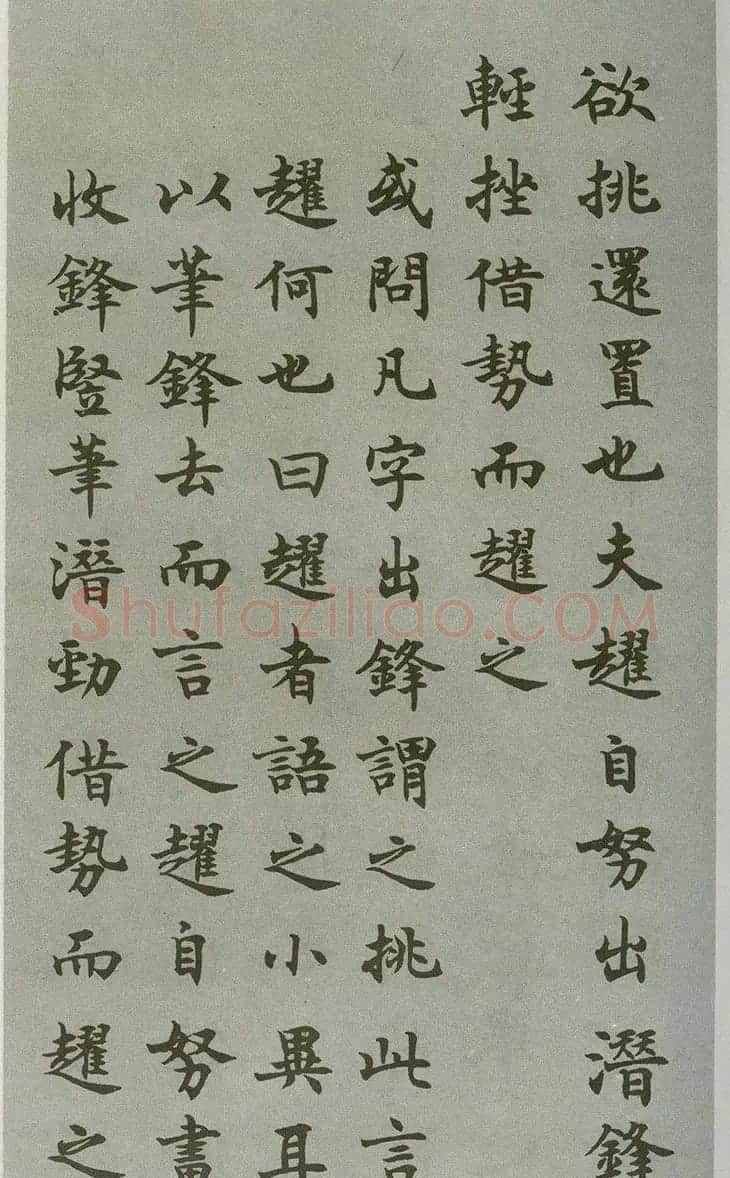 欲挑還置也夫趯自努出潛鋒
輕挫借勢而趯之
或問凡字出鋒謂之挑此言
趯何也曰趯者語之小異耳
以筆鋒去而言之趯自努畫
收鋒竪筆潛勁借勢而趯之
Shufaziliao.COM